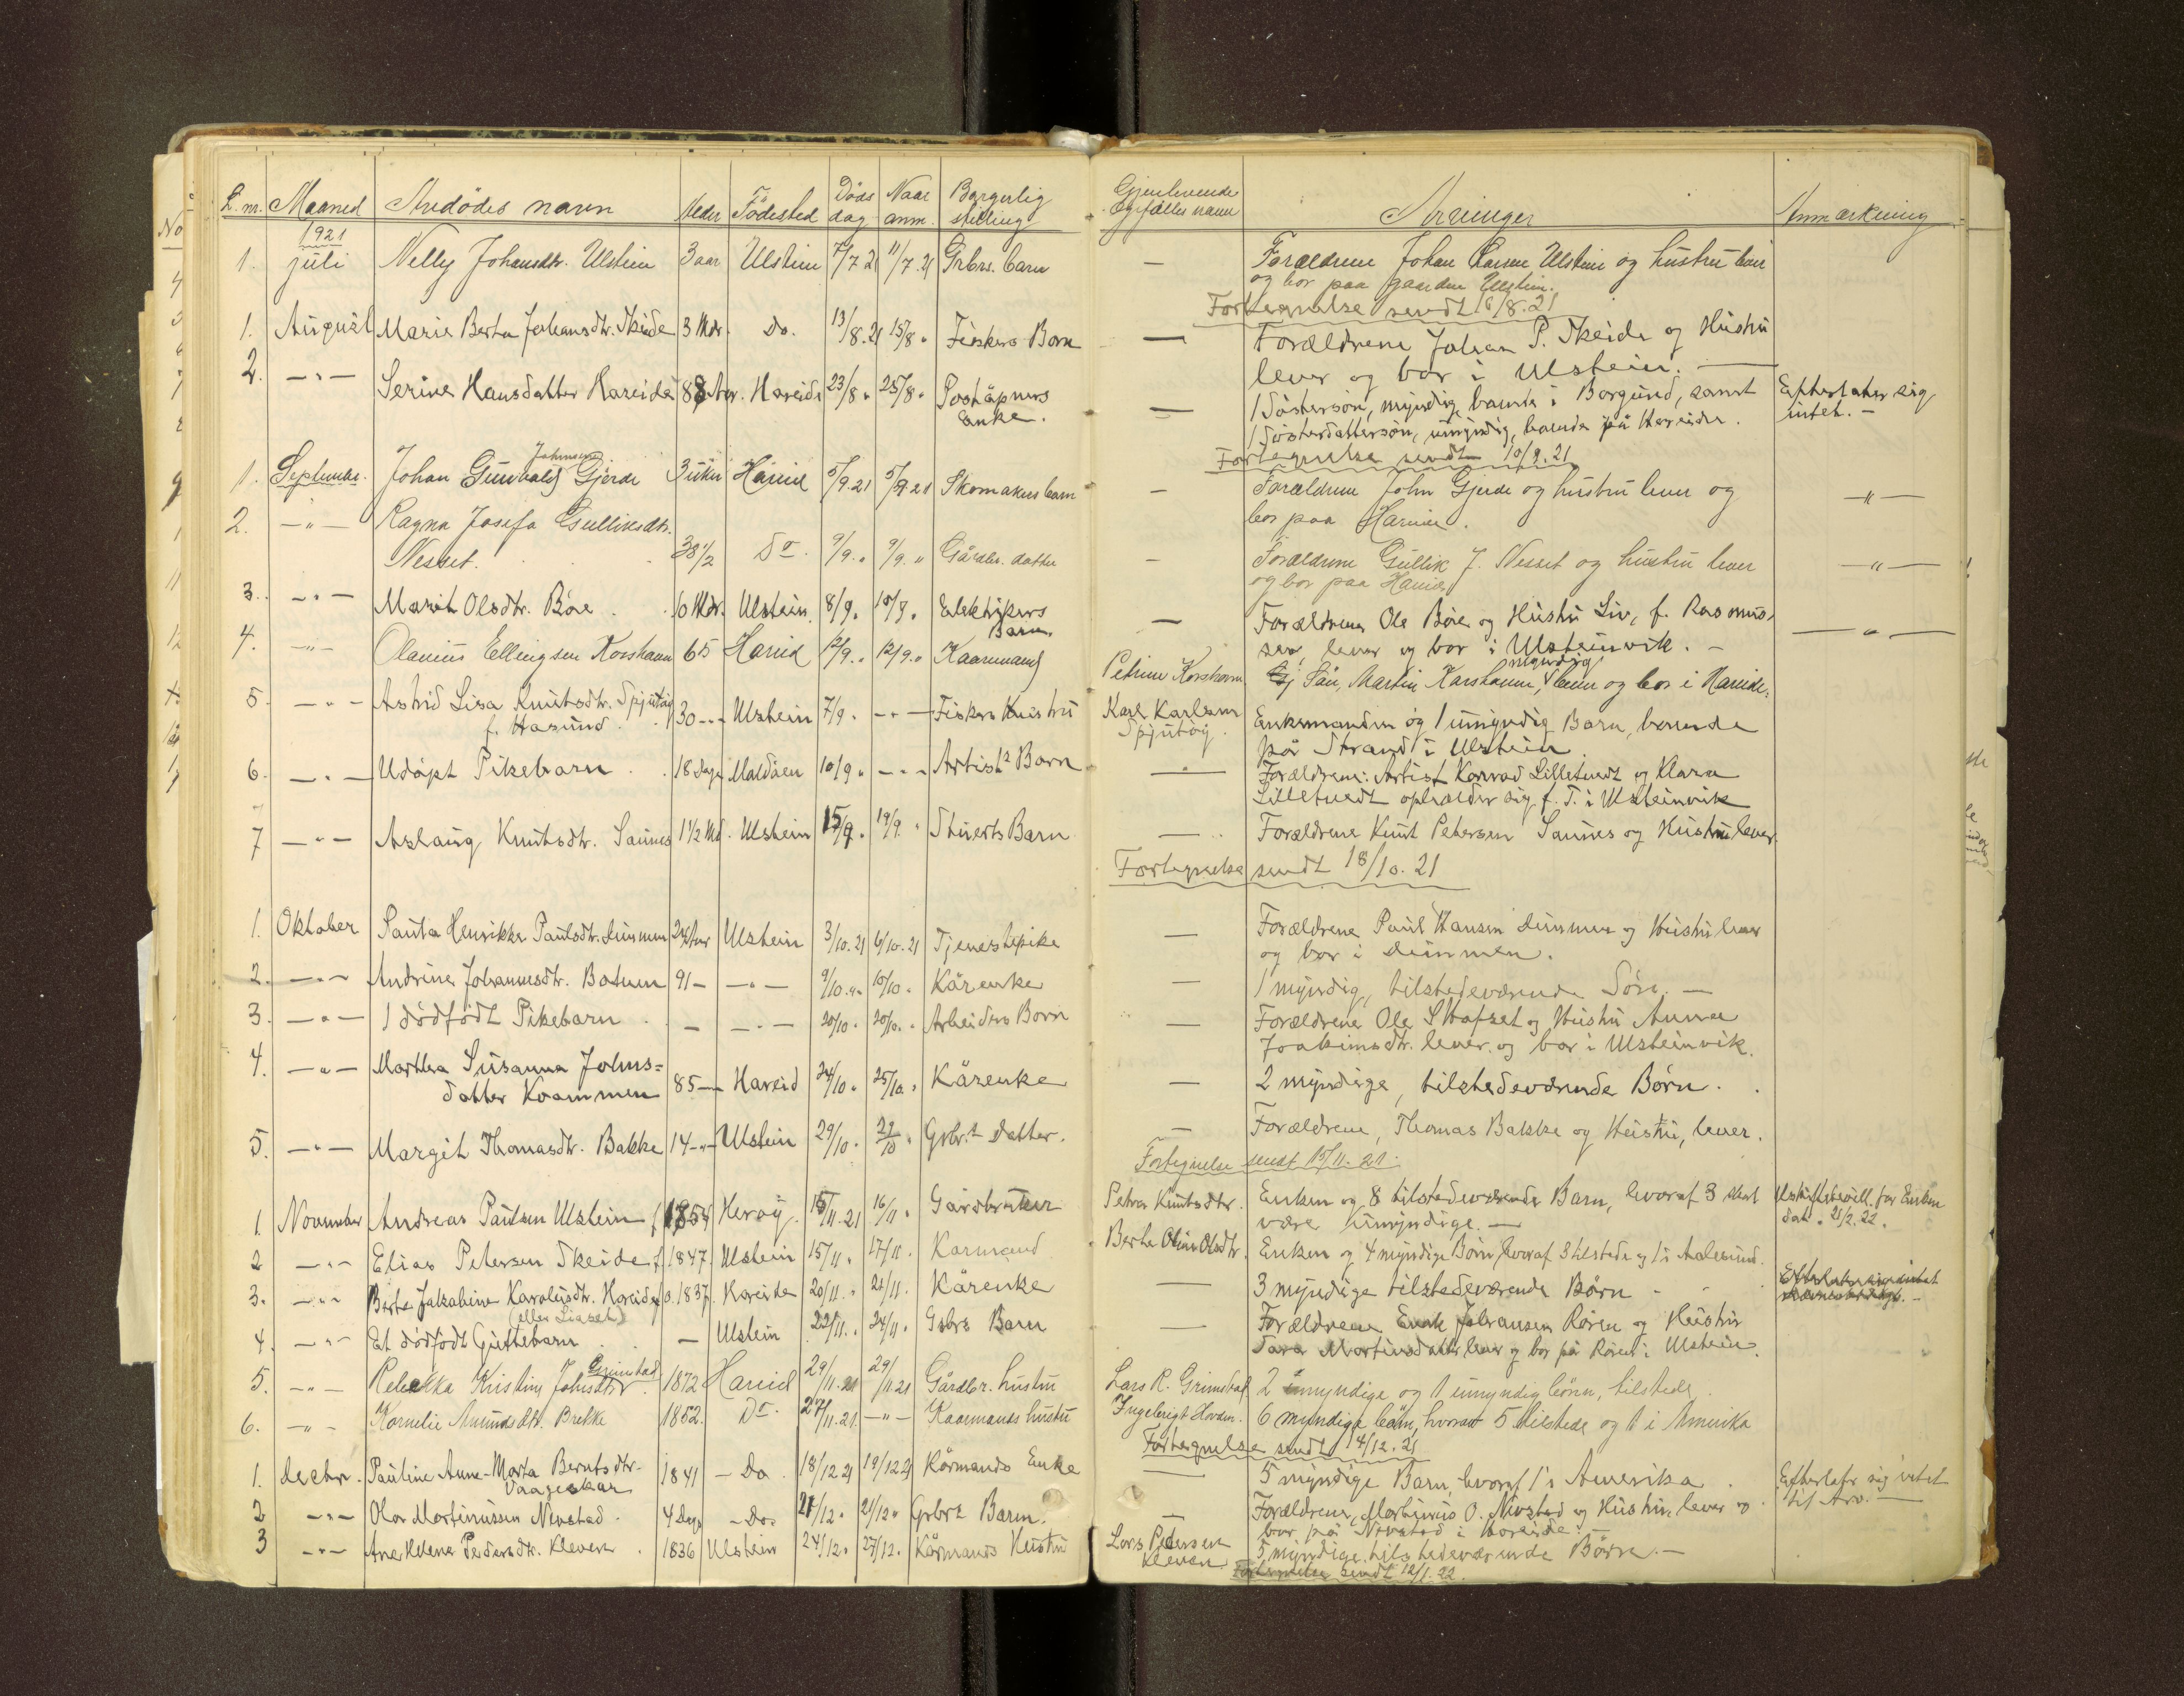 L. nr. Maaned Avdödes navn Alder Födested Döds dag Naar anm. Borgerlig stilling Gjenlevende Egtefælles navn Arvinger Anmærkning
1921
1. juli Nelly Johansdtr. Ulstein 3 aar Ulstein 7/7 21 11/7 21 Grbrs. barn — Forældrene Johan Larsen Ulstein og hustru lever
og bor paa gaarden Ulstein.
Fortegnelse sendt 16/8.21
1. August Marie Berta Johansdtr. Skeide 3 Mdr. Do. 13/8.21 15/8 " Fiskers Barn — Forældrene Johan P. Skeide og Hustru
lever og bor i Ulstein. —
2. — " — Serine Hansdatter Hareide 88 Aar. Hareide 23/8 " 25/8 " Poståpners Enke. — 1 Söstersön, myndig, boende i Borgund, samt Efterlater sig
1 Sösterdattersön, umyndig, boende på Hareide. intet. —
Fortegnelse sendt 10/9.21
1. September. Johan Gunvald Johnsen Gjerde 3 uker Hareid 5/9.21 5/9 21 Skomakers barn — Forældrene John Gjerde og hustru lever og — " —
bor paa Hareid.
2. — " — Ragna Josefa Gulliksdtr.
Nesset. 38 1/2 Do. 9/9. " 9/9. " Gårdbr. datter — Forældrene Gullik J. Nesset og hustru lever — " —
og bor paa Hareid
3. — " — Marit Olsdtr. Böe. 10 Mdr. Ulstein. 8/9. 10/9. Elektrikers Barn. — Forældrene Ole Böe og Hustru Liv, f. Rasmus-
sen, lever og bor i Ulsteinvik. — — " —
4. — " — Olanius Ellingsen Korshavn 65 Hareid 12/9. " 12/9. " Kaarmand Petrine Korshavn Sön, Martin Korshavn, myndig, lever og bor i Hareide.
5. — " — Astrid Lisa Knutsdtr. Spjutöy
f. Hasund. 30 — " — Ulstein 7/9. — " — Fiskers Hustru Karl Karlsen Spjutöy. Enkemanden og 1 umyndig Barn, boende
på Strand i Ulstein.
6. — " — Udöpt Pikebarn. 18 Dage Maldöen 10/9 " — " — Artists Barn — " — Forældrene: Artist Konrad Lilletvedt og Klara
Lilletvedt opholder sig f. T. i Ulsteinvik
7 — " — Aslaug Knutsdtr. Saunes 1 1/2 Md. Ulstein 15/9. 19/9. " Stuerts Barn — Forældrene Knut Petersen Saunes og Hustru lever.
Fortegnelse sendt 18/10.21
1. Oktober Paula Henrikke Paulsdtr. Dimmen 24 Aar Ulstein 3/10.21 6/10.21 Tjenestepike — Forældrene Paul Hansen Dimmen og Hustru lever
og bor i Dimmen.
2. — " — Andrine Johannesdtr. Botnen 91 — — " — 9/10. " 10/10. " Kårenke — 1 myndig, tilstedeværende Sön. —
3. — " — 1 dödfödt Pikebarn. — — " — 20/10 " 20/10. " Arbeiders Barn — Forældrene Ole S Hafset og Hustru Anna
Joakimsdtr. lever og bor i Ulsteinvik.
4. — " — Marthea Susanna Johns=
datter Kvammen 85 — Hareid 24/10 " 25/10. " Kårenke — 2 myndige, tilstedeværende Börn.
5. — " — Margit Thomasdtr. Bakke 14 — " — Ulstein 29/10 " 29/10 " Grbr.s Datter. — Forældrene, Thomas Bakke og Hustru, lever.
Fortegnelse sendt 15/11.21.
1. November Andreas Paulsen Ulstein f 1854 Heröy. 15/11.21 16/11 " Gårdbruker Petra Knutsdtr. Enken og 8 tilstedeværende Barn, hvoraf 3 skal Uskiftebevill. for Enken
være umyndige. — dat. 21/2.22.
2 — " — Elias Petersen Skeide f 1847. Ulstein 15/11 " 17/11. Karmand Berte Oline Olsdtr. Enken og 4 myndige Börn, hvoraf 3 tilstede og 1 i Aalesund.
3. — " — Berte Jakobine Karolusdtr. Hareide
(eller Liaset) 1837. Hareide 20/11. " 21/11. Kårenke — 3 myndige tilstedeværende Börn
4. — " — Et dödfödt Guttebarn — Ulstein 22/11. " 24/11 " Gsbrs Barn — Forældrene Johansen Rören og Hustru
Martinsdatter lever og bor på Rören i Ulstein.
5. — " — Rebekka Kristine Johnsdtr Grimstad 1872 Hareid 29/11.21 29/11 21 Gårdbr. hustru Lars R. Grimstad 2 myndige og 1 umyndig börn, tilstede.
6. — " — Kornelie Amundsdtr. Brekke 1852. Do. 27/11.21. — " — Kaarmands hustru Ingebrigt Hovden. 6 myndige börn, hvorav 5 tilstede og 1 i Amerika
Fortegnelse sendt 14/12.21
1. Decbr. Pauline Anne-Marta Berntsdtr.
Vaageskar 1841 — Do. 18/12 21 19/12 21 Kårmands Enke — 5 myndige Barn, hvoraf 1 i Amerika. Efterlatr sig intet
til Arv. —
2 — " — Olav Martinussen Nevstad. 4 Dage — Do. 21/12. 21/12 " Grbrs Barn. — Forældrene, Martinus O. Nevstad og Hustru, lever og
bor på Nevstad i Hareide.
3 — " — Ane Helene Pedersdtr. Kleven. 1836 Ulstein 24/12. 27/12. Kårmands Hustru Lars Pedersen Kleven 5 myndige tilstedeværende Börn. —
Fortegnelse sendt 12/1.22.